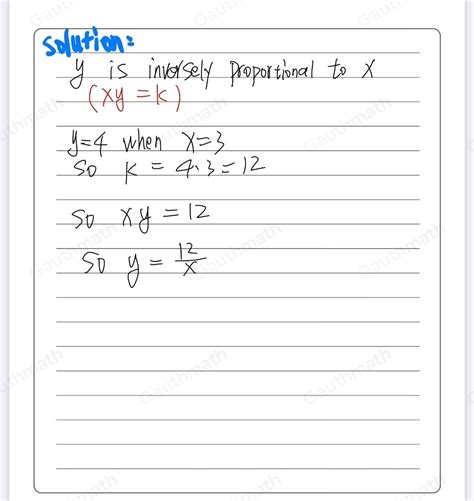 Solution:
y is inversely proportional to x
(xy = k)
y=4 when x=3
so k = 4·3 = 12
so xy = 12
so y = 12/x
Gauthmath